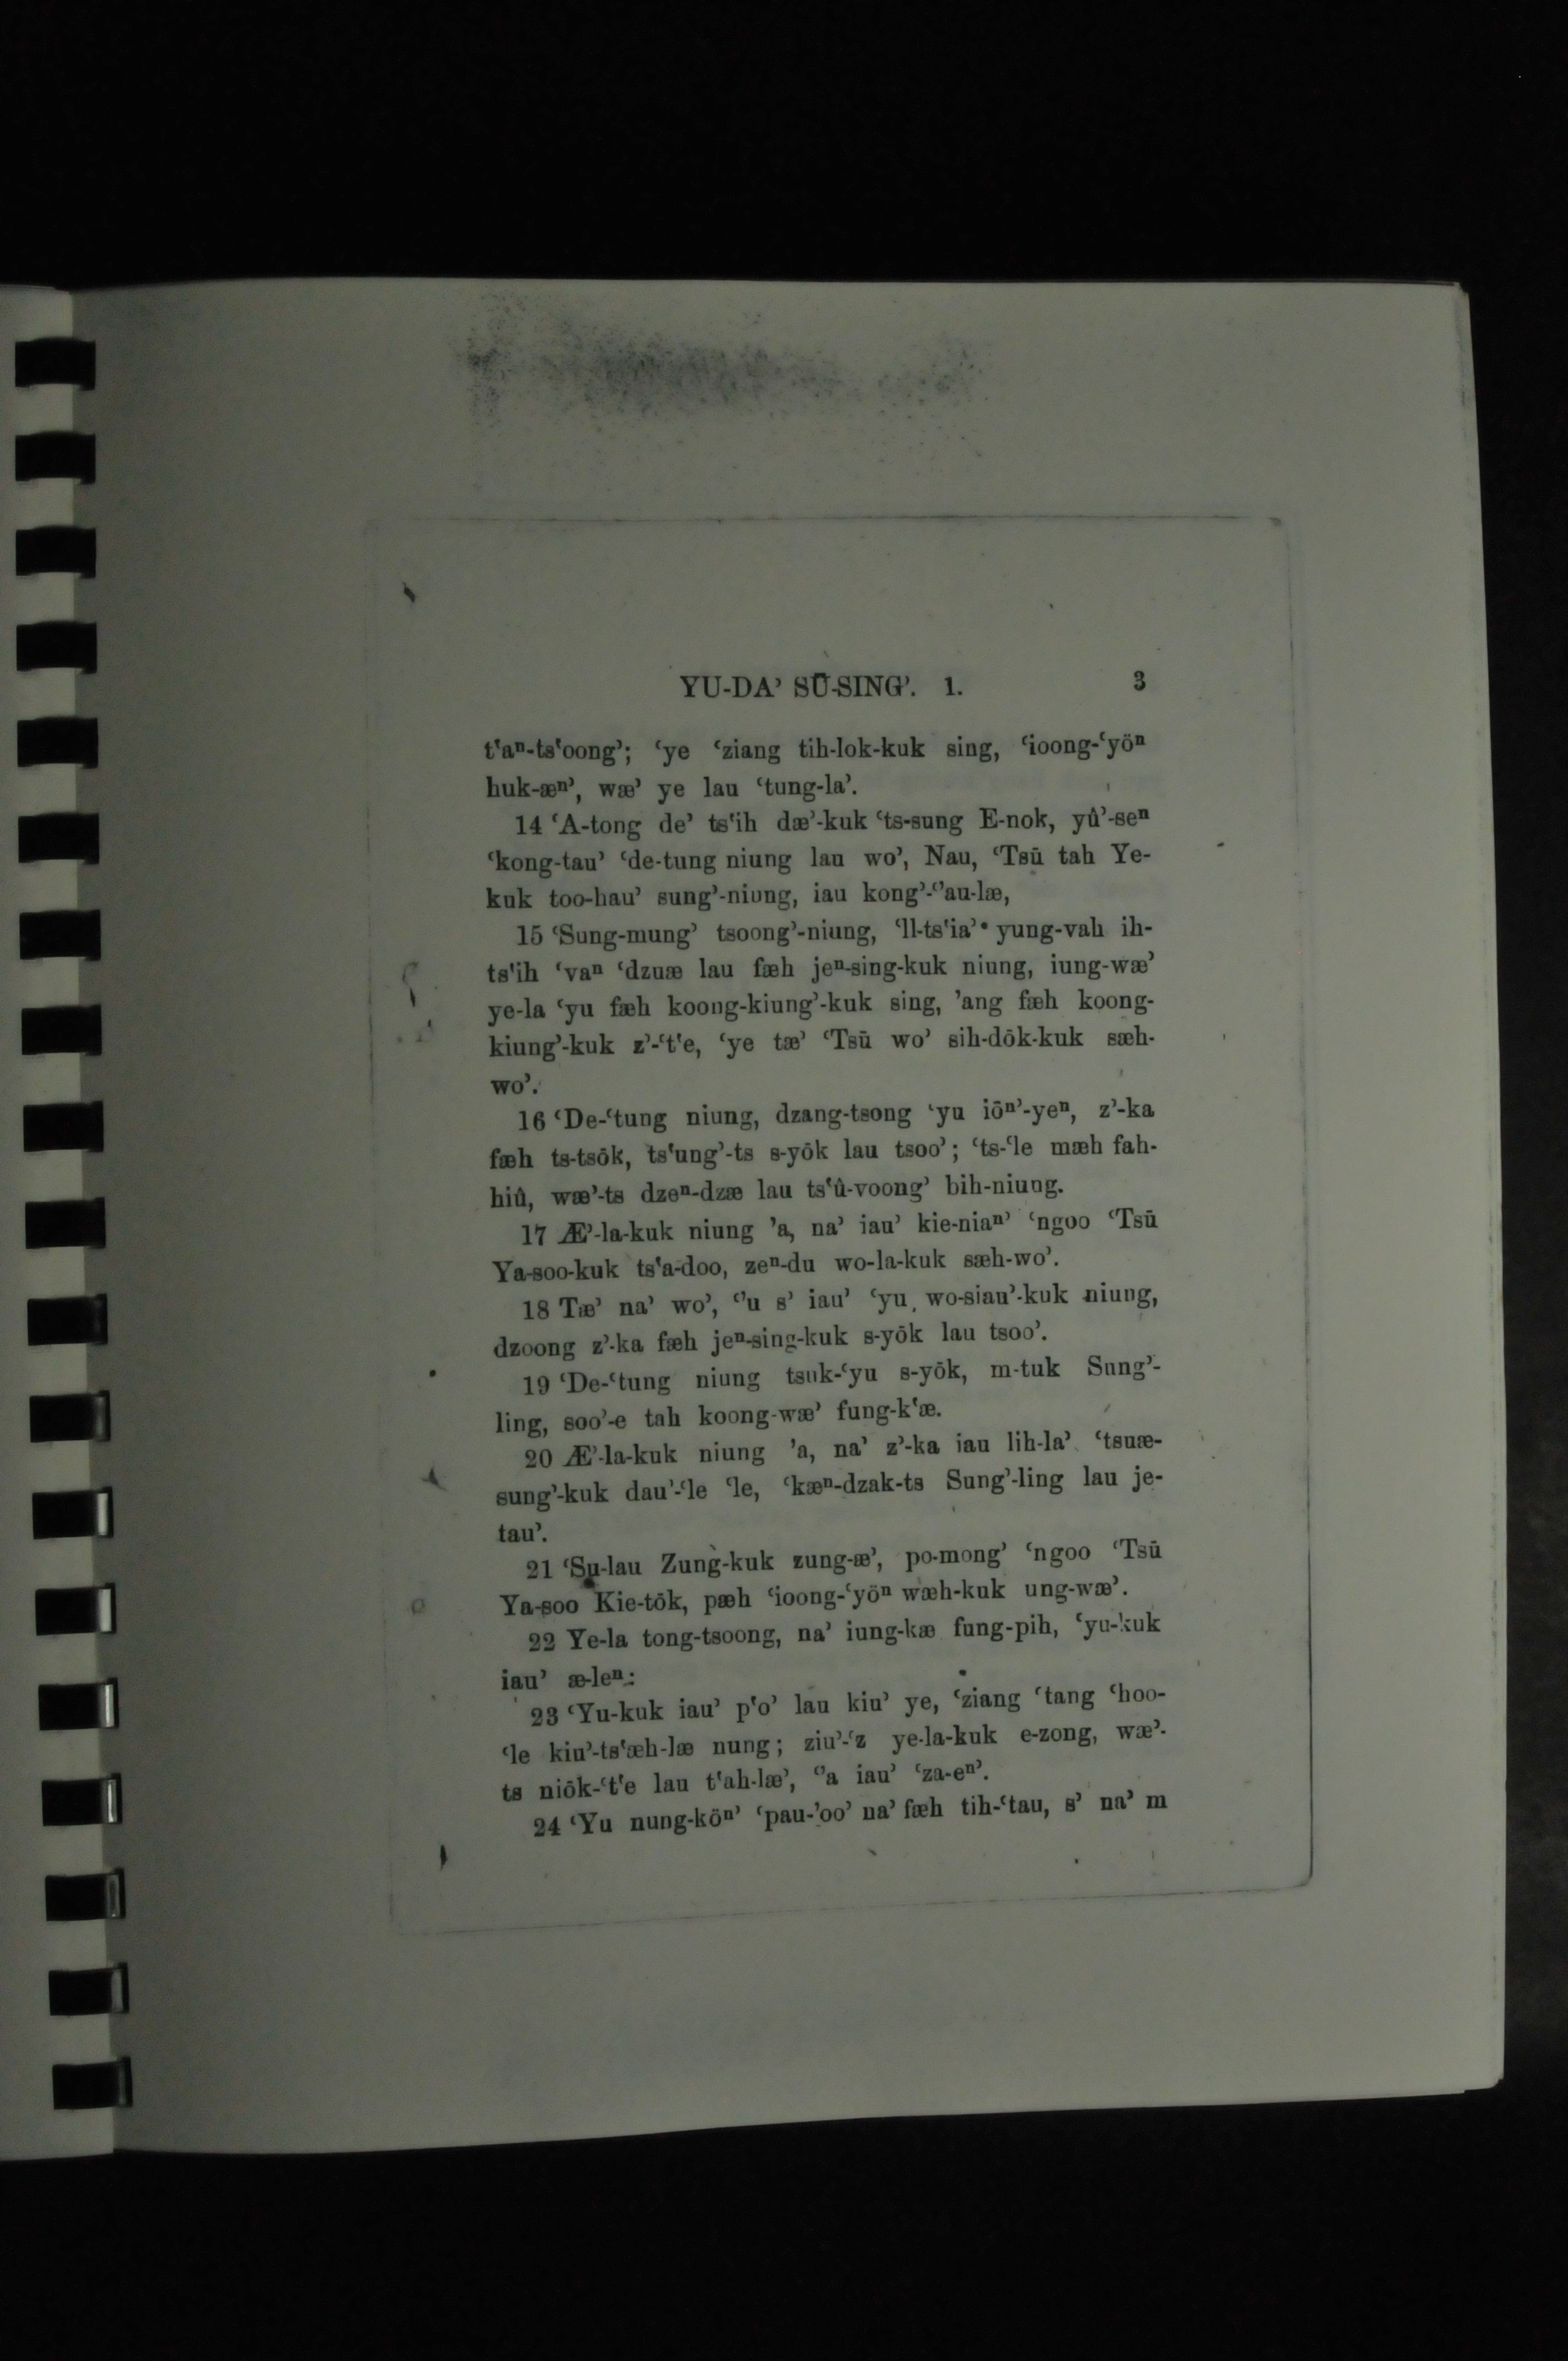 YU-DA’ SŪ-SING’. 1. 3
t‘aⁿ-ts‘oong’; ‘ye ‘ziang tih-lok-kuk sing, ‘ioong-‘yöⁿ
huk-æⁿ’, wæ’ ye lau ‘tung-la’.
14 ‘A-tong de’ ts‘ih dæ’-kuk ‘ts-sung E-nok, yû’-seⁿ
‘kong-tau’ ‘de-tung niung lau wo’, Nau, ‘Tsū tah Ye-
kuk too-hau’ sung’-niung, iau kong’-‘’au-læ,
15 ‘Sung-mung’ tsoong’-niung, ‘ll-ts‘ia’ yung-vah ih-
ts‘ih ‘vaⁿ ‘dzuæ lau fæh jeⁿ-sing-kuk niung, iung-wæ’
ye-la ‘yu fæh koong-kiung’-kuk sing, ’ang fæh koong-
kiung’-kuk z’-‘t‘e, ‘ye tæ’ ‘Tsū wo’ sih-dōk-kuk sæh-
wo’.
16 ‘De-‘tung niung, dzang-tsong ‘yu iöⁿ’-yeⁿ, z’-ka
fæh ts-tsōk, ts‘ung’-ts s-yōk lau tsoo’; ‘ts-‘le mæh fah-
hiû, wæ’-ts dzeⁿ-dzæ lau ts‘û-voong’ bih-niung.
17 Æ’-la-kuk niung ’a, na’ iau’ kie-niaⁿ’ ‘ngoo ‘Tsū
Ya-soo-kuk ts‘a-doo, zeⁿ-du wo-la-kuk sæh-wo’.
18 Tæ’ na’ wo’, ‘’u s’ iau’ ‘yu wo-siau’-kuk niung,
dzoong z’-ka fæh jeⁿ-sing-kuk s-yōk lau tsoo’.
19 ‘De-‘tung niung tsuk-‘yu s-yōk, m-tuk Sung’-
ling, soo’-e tah koong-wæ’ fung-k‘æ.
20 Æ’-la-kuk niung ’a, na’ z’-ka iau lih-la’ ‘tsuæ-
sung’-kuk dau’-‘le ‘le, ‘kæⁿ-dzak-ts Sung’-ling lau je-
tau’.
21 ‘Su-lau Zung-kuk zung-æ’, po-mong’ ‘ngoo ‘Tsū
Ya-soo Kie-tōk, pæh ‘ioong-‘yöⁿ wæh-kuk ung-wæ’.
22 Ye-la tong-tsoong, na’ iung-kæ fung-pih, ‘yu-kuk
iau’ æ-leⁿ:
23 ‘Yu-kuk iau’ p‘o’ lau kiu’ ye, ‘ziang ‘tang ‘hoo-
‘le kiu’-ts‘æh-læ nung; ziu’-‘z ye-la-kuk e-zong, wæ’-
ts niōk-‘t‘e lau t‘ah-læ’, ‘’a iau’ ‘za-eⁿ’.
24 ‘Yu nung-köⁿ’ ‘pau-’oo’ na’ fæh tih-‘tau, s’ na’ m